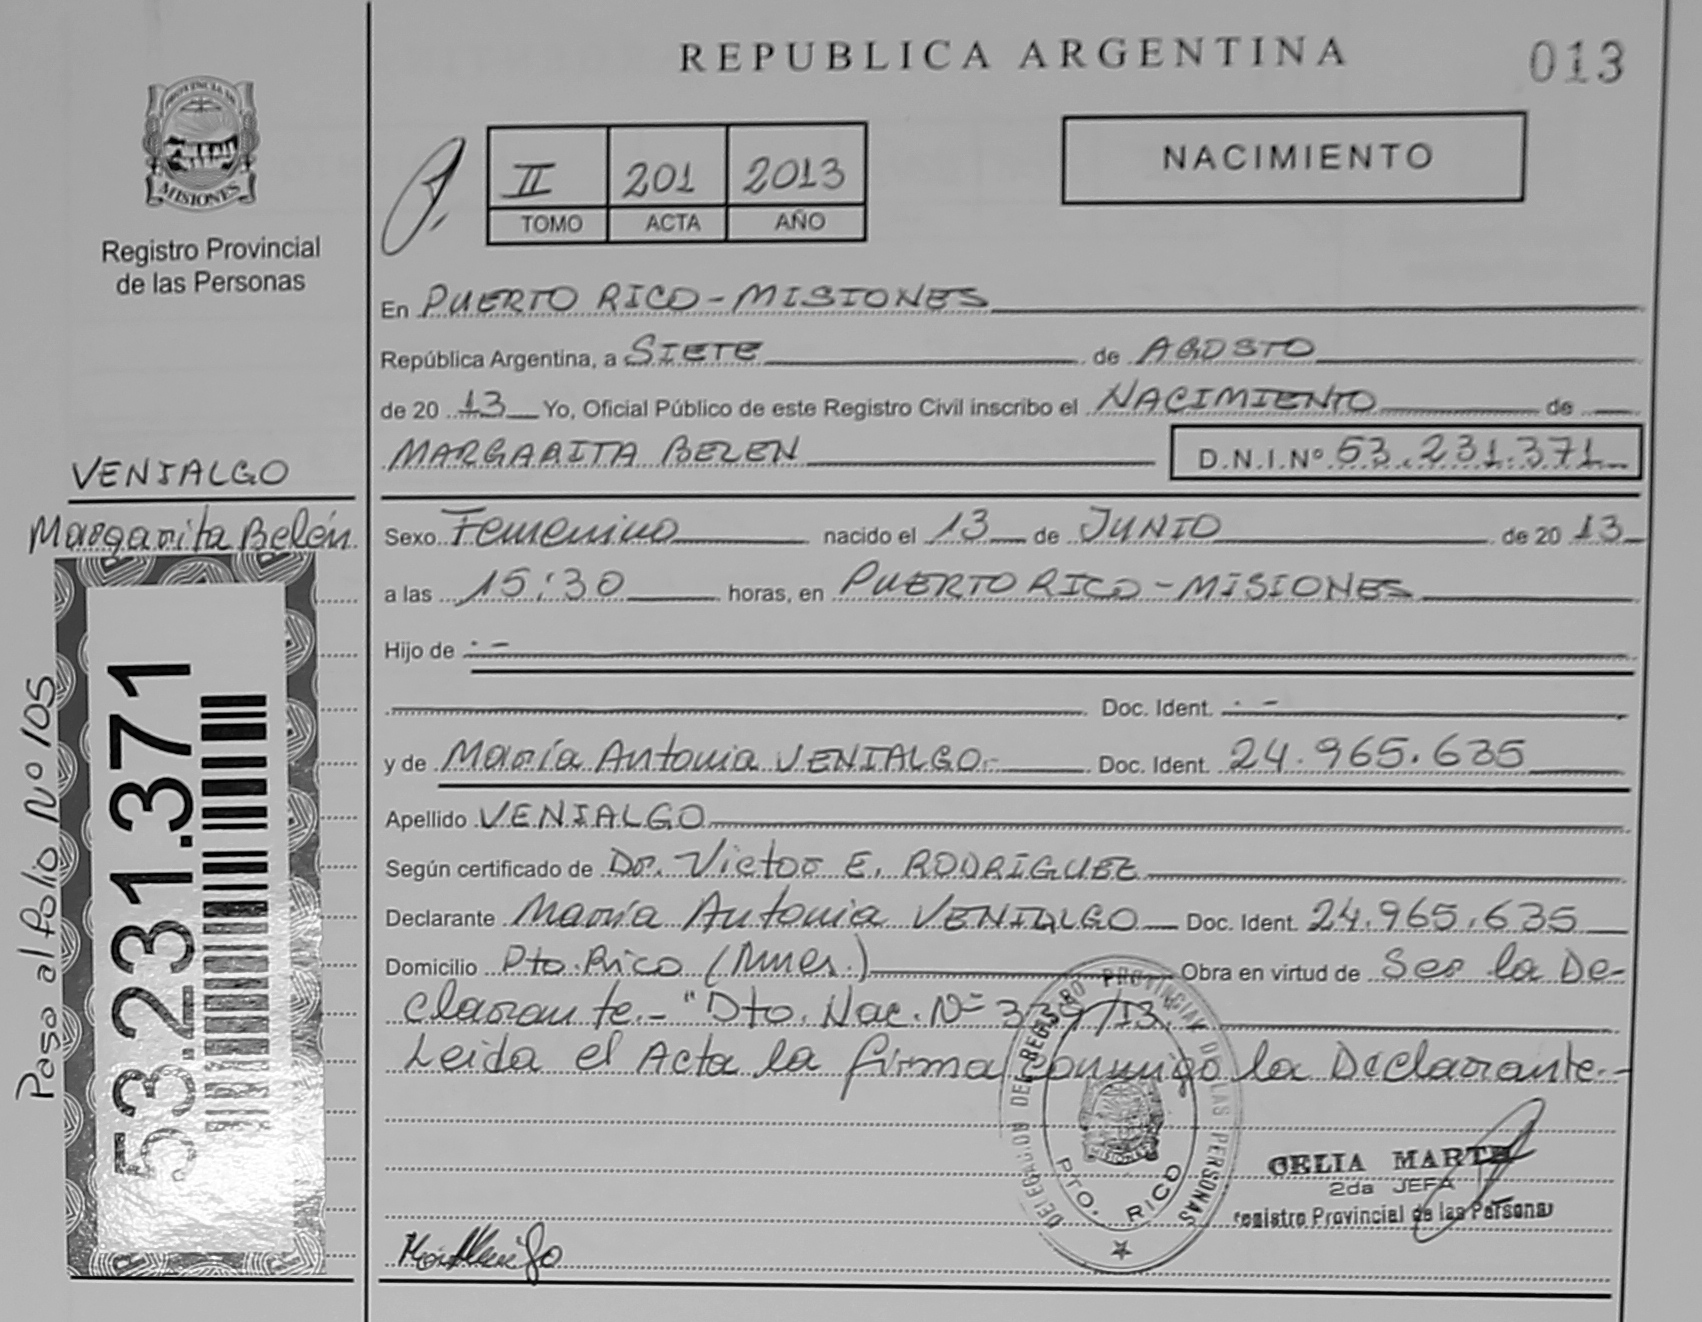 REPUBLICA ARGENTINA
013
PROVINCIA DE
MISIONES
Registro Provincial
de las Personas
II 201 2013
TOMO ACTA AÑO
NACIMIENTO
En PUERTO RICO - MISIONES
República Argentina, a SIETE de AGOSTO
de 20 13 Yo, Oficial Público de este Registro Civil inscribo el NACIMIENTO de
MARGARITA BELEN D.N.I.Nº 53.231.371
VENIALGO
Margarita Belén
53.231.371
Paso al folio Nº 105
Sexo Femenino nacido el 13 de JUNIO de 20 13
a las 15:30 horas, en PUERTO RICO - MISIONES
Hijo de . -
Doc. Ident. . -
y de María Antonia VENIALGO.- Doc. Ident. 24.965.635
Apellido VENIALGO
Según certificado de Dr. Victor E. RODRIGUEZ
Declarante María Antonia VENIALGO Doc. Ident. 24.965.635
Domicilio Pto. Rico (Mnes.) Obra en virtud de Ser la De-
clarante.- "Dto. Nac. Nº 339/13.
Leida el Acta la firma conmigo la Declarante.-
DELEGACION DEL REGISTRO PROVINCIAL DE LAS PERSONAS
PTO. RICO
CELIA MARTE
2da JEFA
Registro Provincial de las Personas